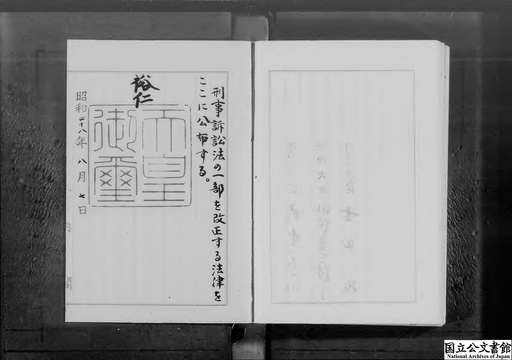 刑事訴訟法の一部を改正する法律を
ここに公布する。
裕仁
天皇
御璽
昭和二十八年八月七日
国立公文書館
National Archives of Japan